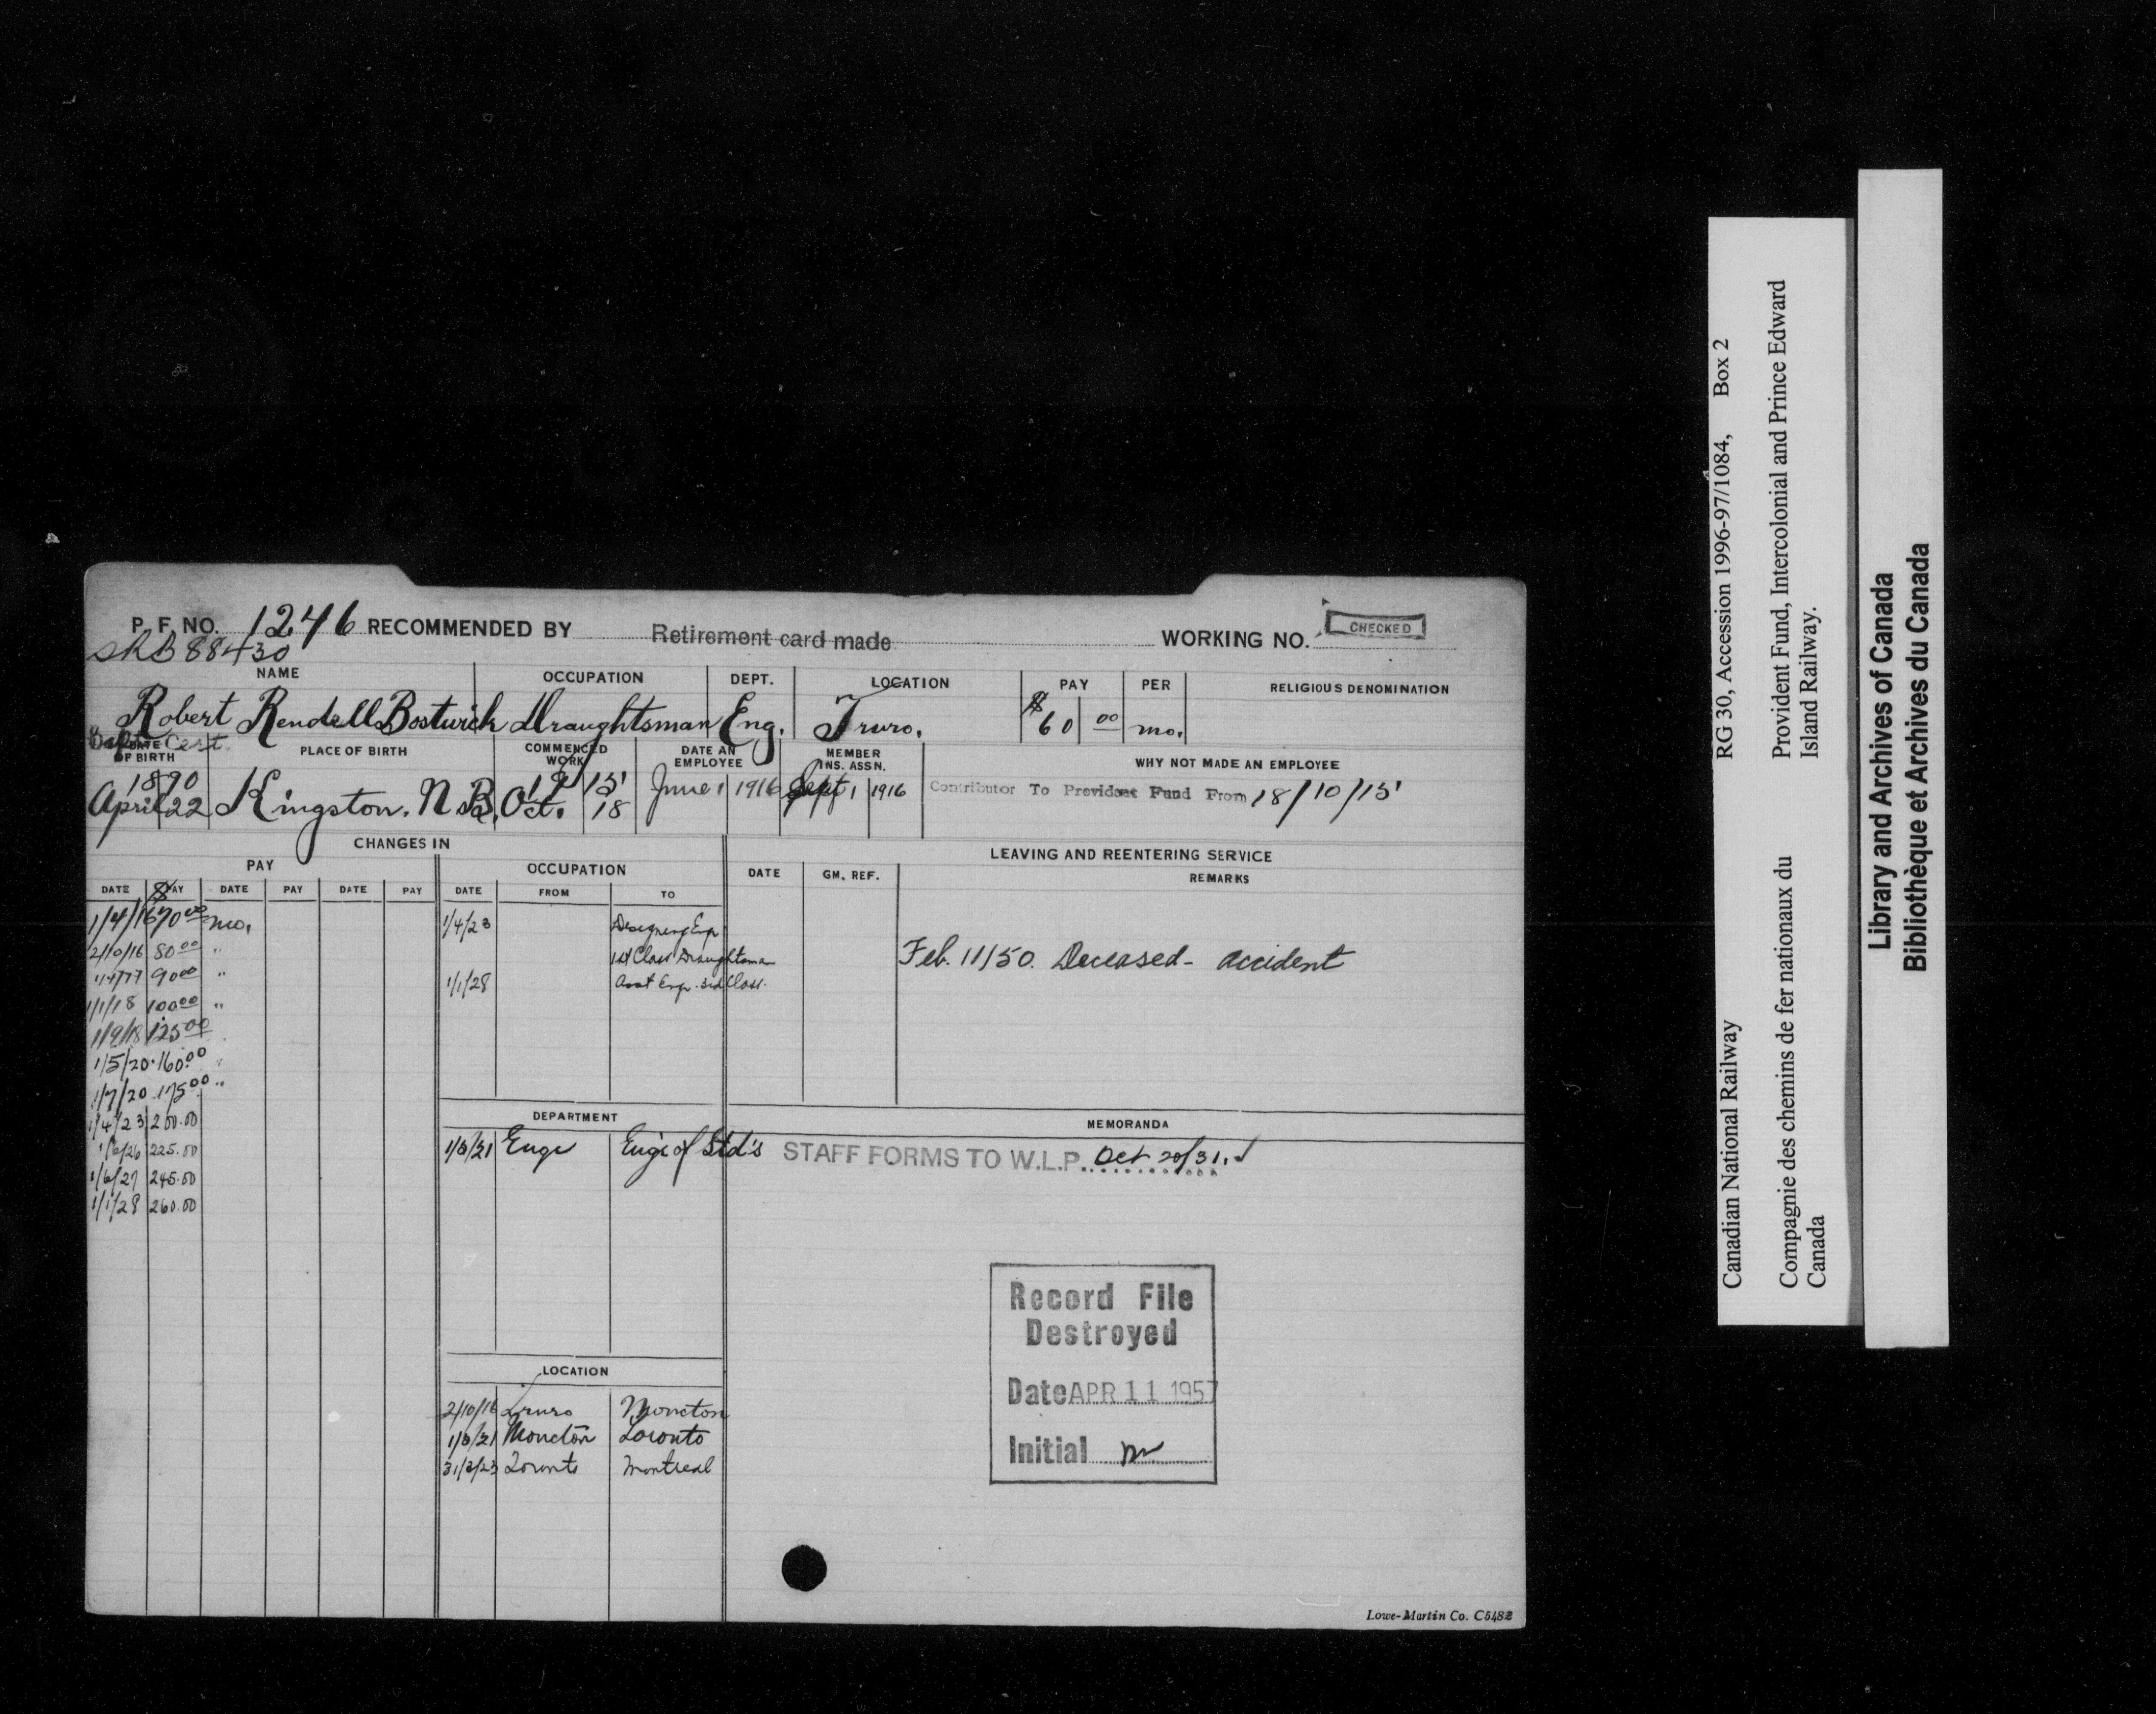 P. F. NO. 1246 RECOMMENDED BY Retirement card made WORKING NO. CHECKED
88430
NAME OCCUPATION DEPT. LOCATION PAY PER RELIGIOUS DENOMINATION
Robert Rendell Bostwick Draughtsman Eng. Truro. $60 00 mo.
Bapt. Cert.
DATE OF BIRTH PLACE OF BIRTH COMMENCED WORK DATE AN EMPLOYEE MEMBER INS. ASSN. WHY NOT MADE AN EMPLOYEE
1890 19 15
April 22 Kingston. N.B. Oct. 18 June 1 1916 Sept 1 1916 Contributor To Provident Fund From 18/10/15
CHANGES IN
LEAVING AND REENTERING SERVICE
PAY OCCUPATION
DATE GM. REF. REMARKS
DATE PAY DATE PAY DATE PAY DATE FROM TO
$
1/4/16 70 00 mo. 1/4/23 Designing Engr
2/10/16 80 00 " 1st Class Draughtsman
Feb. 11/50. Deceased - accident
90 00 " 1/1/28 Asst Engr. 3rd Class.
1/1/18 100 00 "
1/9/18 125 00
1/5/20 160 00 "
1/7/20 175 00 "
1/4/23 200.00
1/6/26 225.00
1/6/27 245.00
1/1/28 260.00
DEPARTMENT
MEMORANDA
1/3/21 Engr Engr of Std's STAFF FORMS TO W.L.P. Oct 20/31.
Record File
Destroyed
Date APR 11 1957
Initial
LOCATION
2/10/16 Truro Moncton
1/3/21 Moncton Toronto
31/3/23 Toronto Montreal
Lowe-Martin Co. C5482
Canadian National Railway RG 30, Accession 1996-97/1084, Box 2
Compagnie des chemins de fer nationaux du Canada
Provident Fund, Intercolonial and Prince Edward Island Railway.
Library and Archives of Canada
Bibliothèque et Archives du Canada